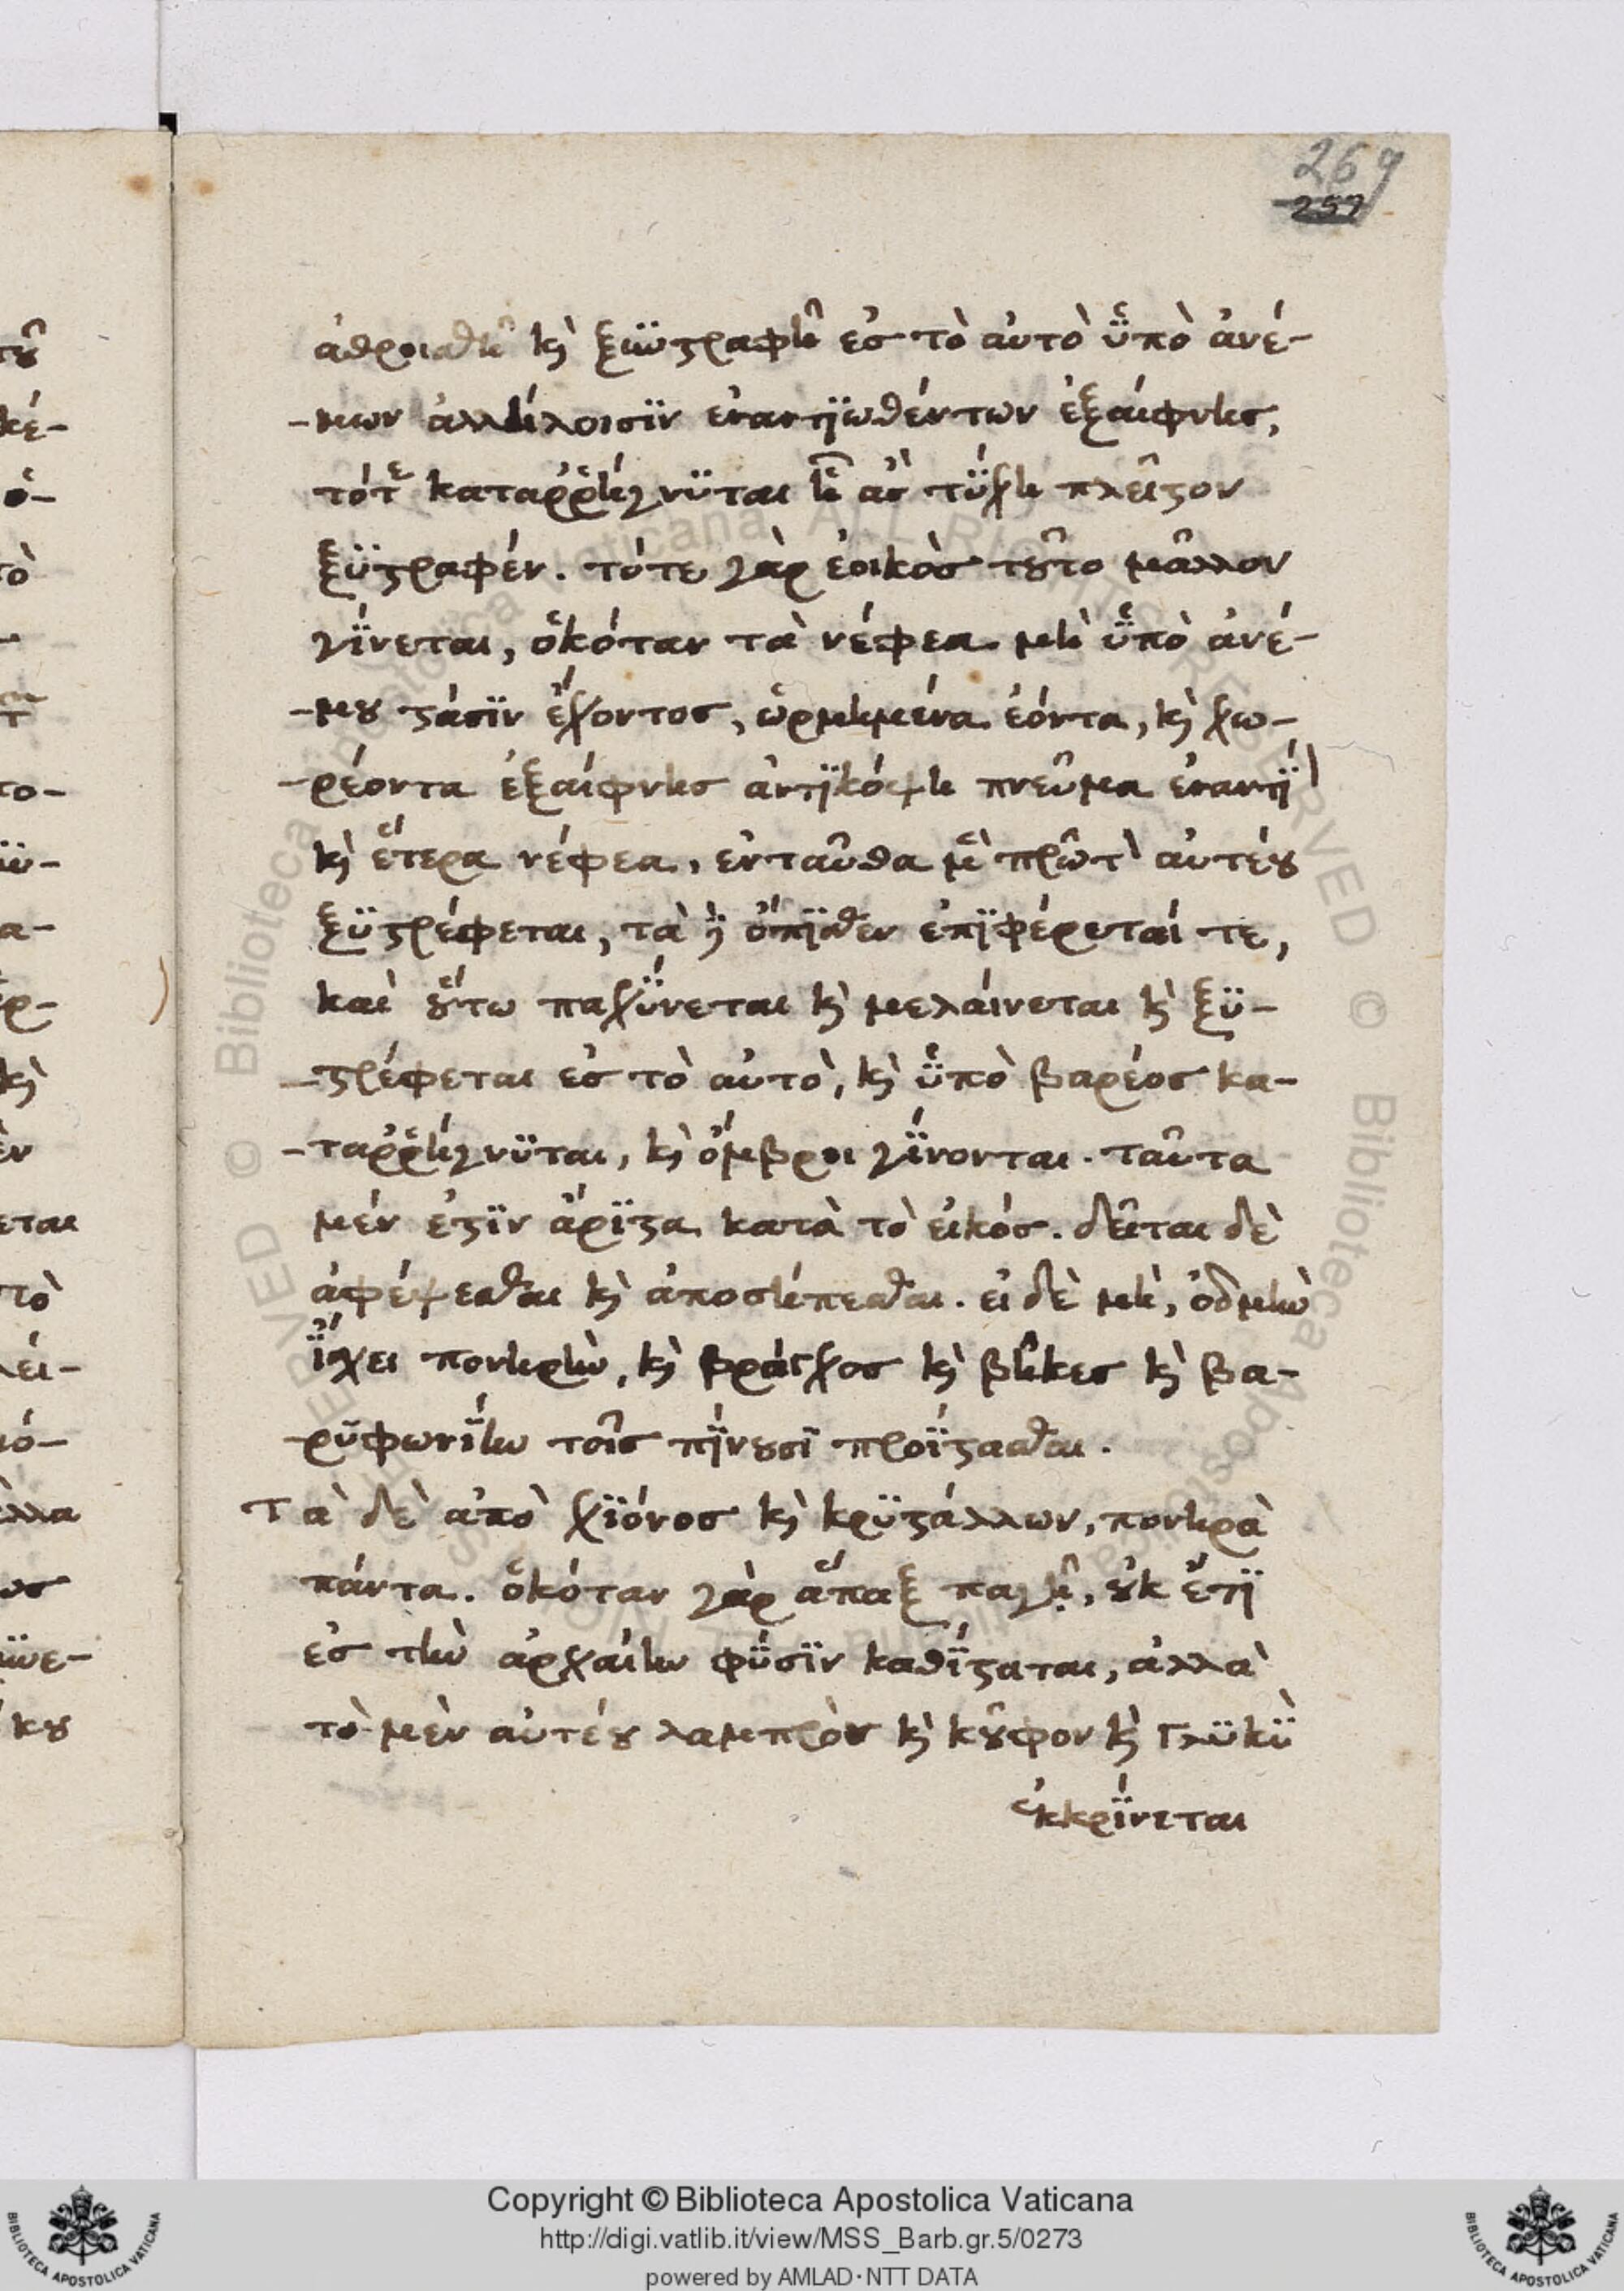 269
257
ἀθροισθῆ κ̀ ξυϋστραφῆ ἐς τὸ αὐτὸ ὑπὸ ἀνέ-
-μων ἀλλήλοισϊν ἐναντϊωθέντων ἐξαίφνης,
τότε καταῤῥήγνϋται ἧ ἂν τύχη πλεῖστον
ξϋστραφέν. τότε γὰρ ἐοικὸς τοῦτο μᾶλλον
γΐνεται, ὁκόταν τὰ νέφεα μὴ ὑπὸ ἀνέ-
-μου στάσϊν ἔχοντος, ὡρμημένα ἐόντα, κ̀ χω-
-ρέοντα ἐξαίφνης ἀντϊκόψη πνεῦμα ἐναντΐ
κ̀ ἕτερα νέφεα, ἐνταῦθα μὲ πρῶτ̀ αὐτέου
ξϋστρέφεται, τὰ δὲ ὄπϊσθεν ἐπϊφέρεταί τε,
καὶ οὕτω παχΰνεται κ̀ μελαίνεται κ̀ ξϋ-
-στρέφεται ἐς τὸ αὐτὸ, κ̀ ὑπὸ βαρέος κα-
-ταῤῥήγνϋται, κ̀ ὄμβροι γΐνονται. ταῦτα
μέν ἐστϊν ἄρϊστα κατὰ τὸ εἰκός. δεῖται δὲ
ἀφέψεσθαι κ̀ ἀποσήπεσθαι. εἰ δὲ μὴ, ὀδμὴν
ἴσχει πονηρὴν, κ̀ βράγχος κ̀ βῆκες κ̀ βα-
-ρϋφωνΐην τοῖς πΐνουσϊ προΐστασθαι.
Τὰ δὲ ἀπὸ χϊόνος κ̀ κρϋστάλλων, πονηρὰ
πάντα. ὁκόταν γὰρ ἅπαξ παγῆ, οὐκ ἔτϊ
ἐς τὴν ἀρχαίην φΰσϊν καθΐσταται, ἀλλὰ
τὸ μὲν αὐτέου λαμπρὸν κ̀ κοῦφον κ̀ γλϋκῢ
ἐκκρΐνεται
Copyright © Biblioteca Apostolica Vaticana
http://digi.vatlib.it/view/MSS_Barb.gr.5/0273
powered by AMLAD·NTT DATA